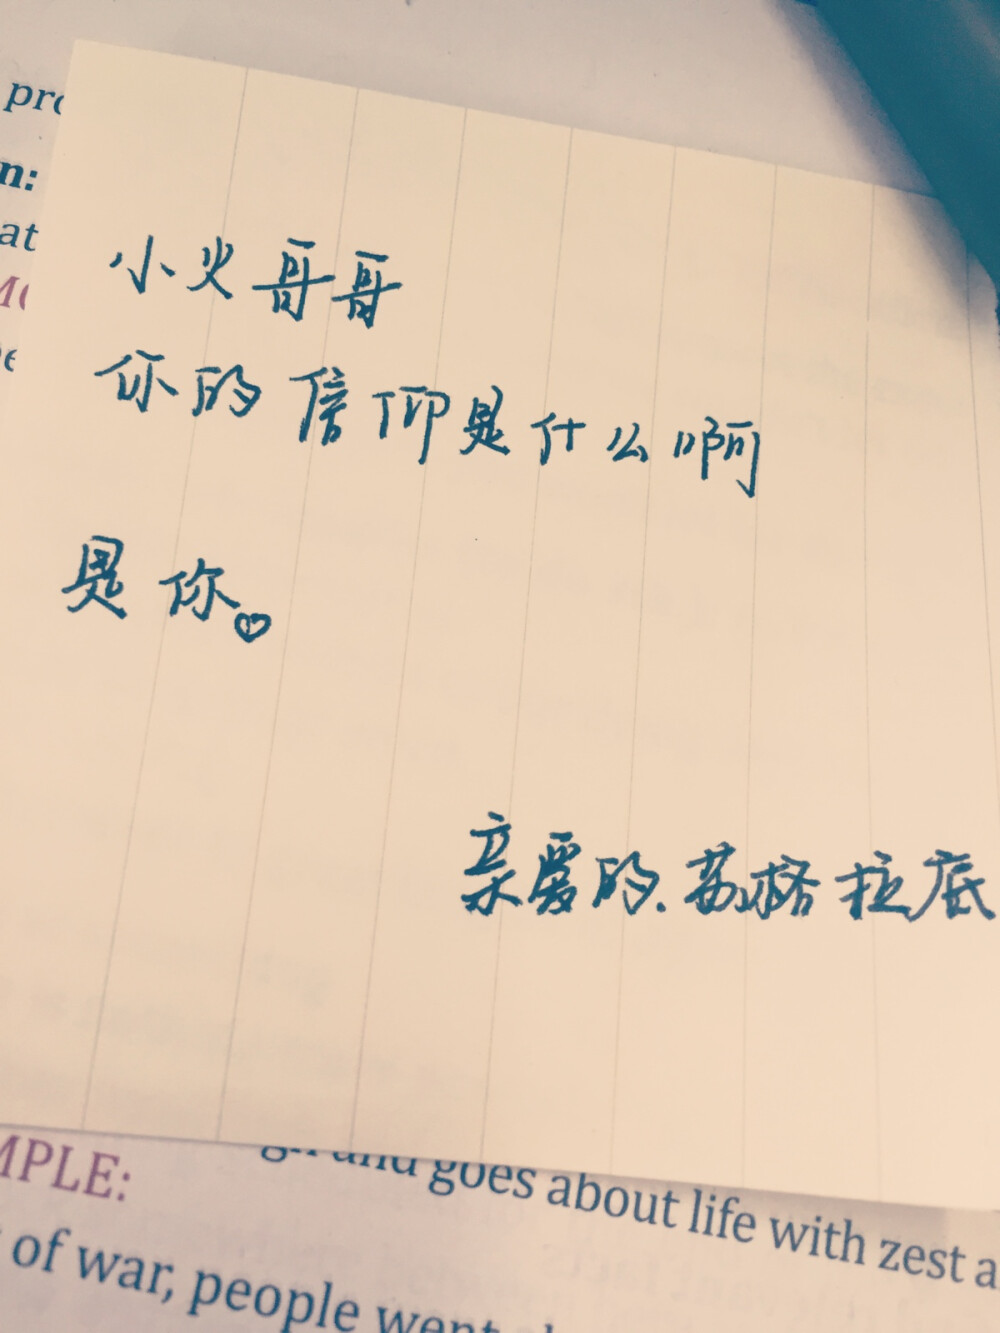 pro
n:
at
小火哥哥
你的信仰是什么啊
是你。
亲爱的.苏格拉底
MPLE:
and goes about life with zest a
of war, people went